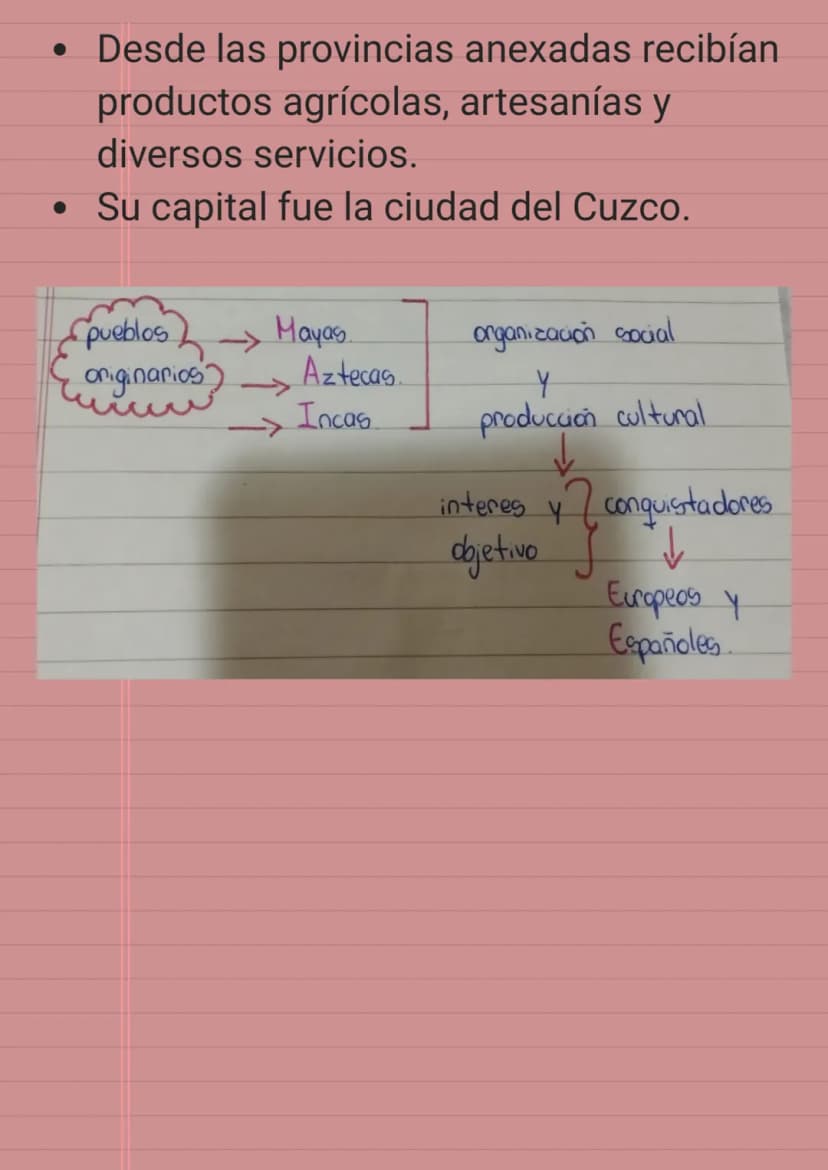 • Desde las provincias anexadas recibían
productos agrícolas, artesanías y
diversos servicios.
• Su capital fue la ciudad del Cuzco.
pueblos originarios
→ Mayas.
→ Aztecas.
→ Incas
organización social
y
producción cultural
↓
interes y
objetivo
conquistadores
↓
Europeos y
Españoles.